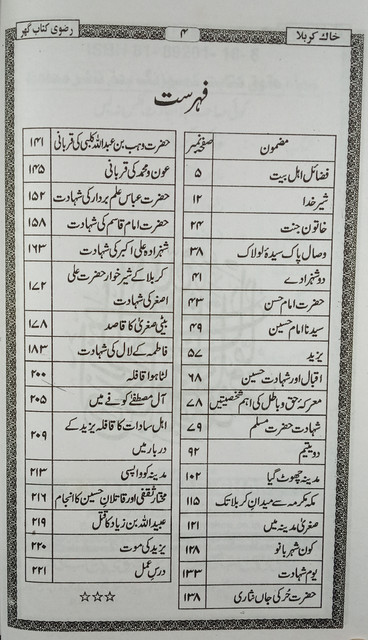 خاک کربلا
۴
رضوی کتاب گھر
فہرست
مضمون صفحہ نمبر
فضائل اہل بیت ۵
شیر خدا ۱۲
خاتون جنت ۲۴
وصال پاک سیدۂ لولاک ۳۸
دو شہزادے ۴۱
حضرت امام حسن ۴۳
سیدنا امام حسین ۴۹
یزید ۵۷
اقبال اور شہادت حسین ۶۸
معرکۂ حق و باطل کی اہم شخصیتیں ۷۸
شہادت حضرت مسلم ۷۹
دو یتیم ۹۲
مدینہ چھوٹ گیا ۱۰۲
مکہ مکرمہ سے میدان کربلا تک ۱۱۵
صغریٰ مدینہ میں ۱۲۱
کون شہر بانو ۱۲۸
یوم شہادت ۱۳۳
حضرت حُر کی جاں نثاری ۱۳۸
حضرت وہب بن عبداللہ کلبی کی قربانی ۱۴۱
عون و محمد کی قربانی ۱۴۵
حضرت عباس علم بردار کی شہادت ۱۵۲
حضرت امام قاسم کی شہادت ۱۵۸
شہزادہ علی اکبر کی شہادت ۱۶۳
کربلا کے شیر خوار حضرت علی
اصغر کی شہادت ۱۷۲
بیٹی صغریٰ کا قاصد ۱۷۸
فاطمہ کے لال کی شہادت ۱۸۳
لٹا ہوا قافلہ ۲۰۰
آل مصطفےٰ کوفے میں ۲۰۵
اہل سادات کا قافلہ یزید کے
دربار میں ۲۰۹
مدینہ کو واپسی ۲۱۳
مختار ثقفی اور قاتلان حسین کا انجام ۲۱۶
عبید اللہ بن زیاد کا قتل ۲۱۹
یزید کی موت ۲۲۰
درس عمل ۲۲۱
☆☆☆